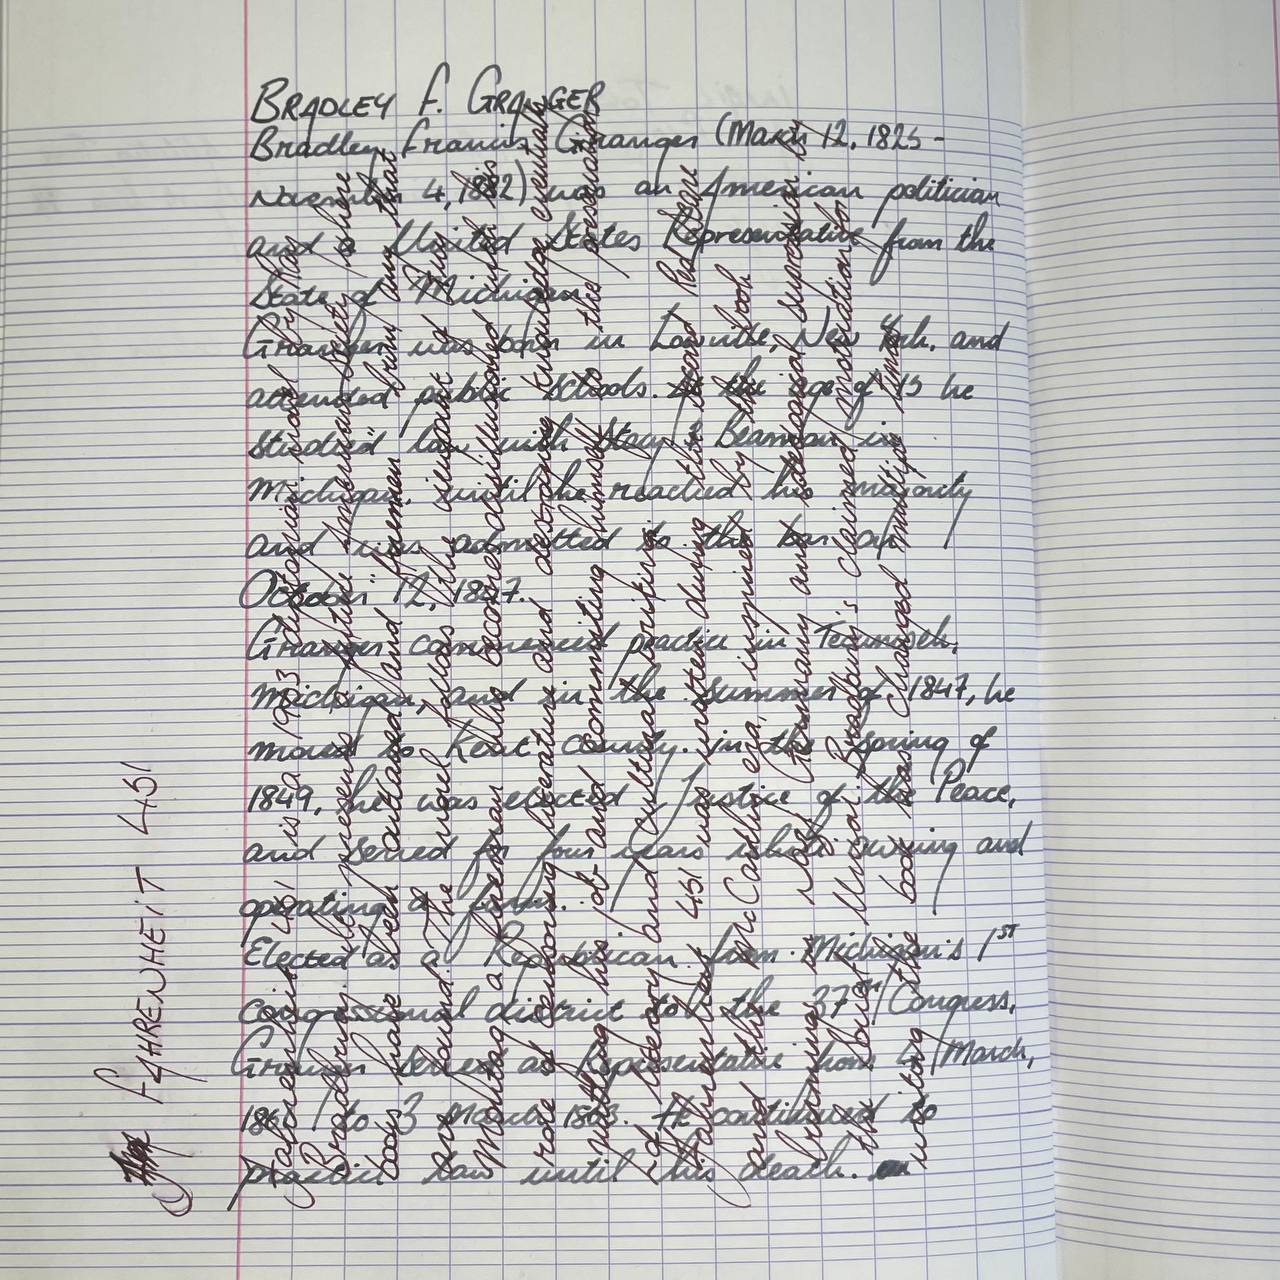 BRADLEY F. GRANGER
Bradley Francis Granger (March 12, 1825 -
November 4, 1882) was an American politician
and a United States Representative from the
State of Michigan.
Granger was born in Lowville, New York, and
attended public schools. At the age of 15 he
studied law with Stacy Beaman in
Michigan, until he reached his majority
and was admitted to the bar on
October 12, 1847.
Granger commenced practice in Tecumseh,
Michigan, and in the summer of 1847, he
moved to Kent County. in the Spring of
1849, he was elected Justice of the Peace,
and served for four years while owning and
operating a farm.
Elected as a Republican from Michigan's 1ST
congressional district to the 37TH Congress,
Granger served as Representative from 4 March,
1861 to 3 March 1863. He continued to
practice law until his death.
FAHRENHEIT 451
Fahrenheit 451 is a 1953 dystopian novel by Ray
Bradbury. presents a future American society where
books have been outlawed and "firemen" burn any that
are found. The novel follows in the viewpoint of Guy
Montag, a fireman who becomes disillusioned with his
role of censoring literature and destroying knowledge, eventually
quitting his job and committing himself to the preservation
of literary and cultural writings.
Fahrenheit 451 was written during the Second Red Scare
and the McCarthy era, inspired by the book
burnings in Nazi Germany and ideological supression by
the Soviet Union. Bradbury's claimed motivation for
writing the book has changed multiple times.